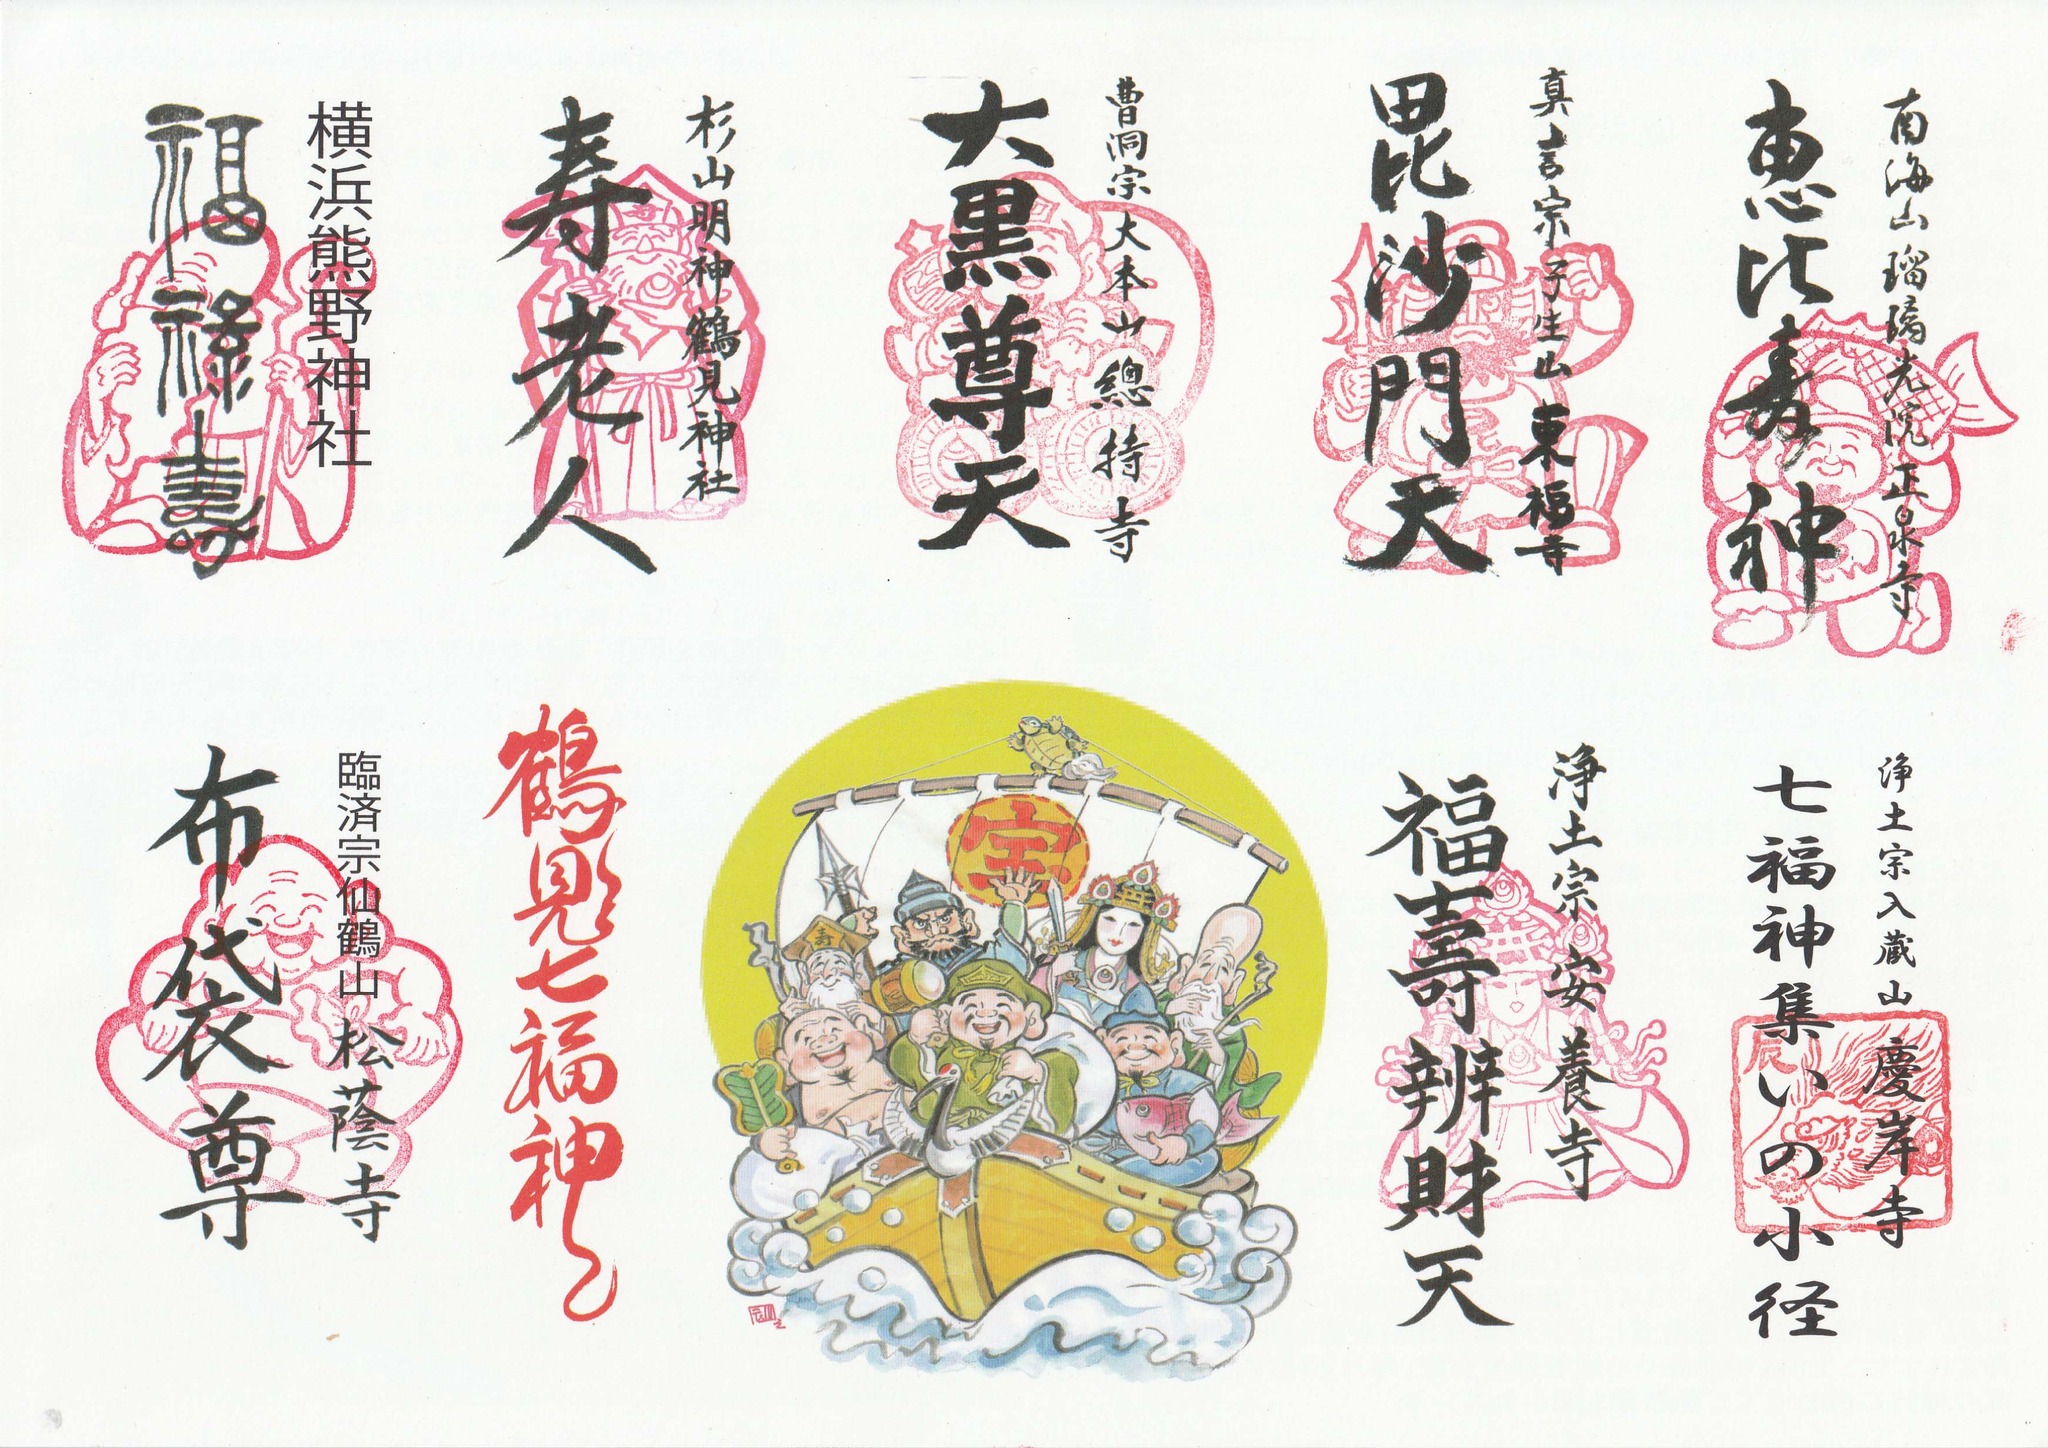 南海山瑠璃光院正泉寺
恵比寿神
真言宗子生山東福寺
毘沙門天
曹洞宗大本山總持寺
大黒尊天
杉山明神鶴見神社
寿老人
横浜熊野神社
福禄壽
浄土宗入蔵山慶岸寺
七福神集いの小径
辰
浄土宗安養寺
福壽辨財天
宝
寿
鶴見七福神
臨済宗仙鶴山松蔭寺
布袋尊